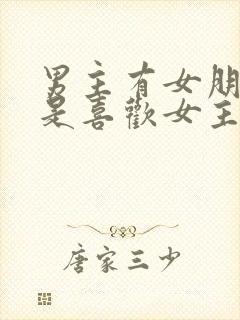 男主有女朋
是喜歡女主
唐家三少